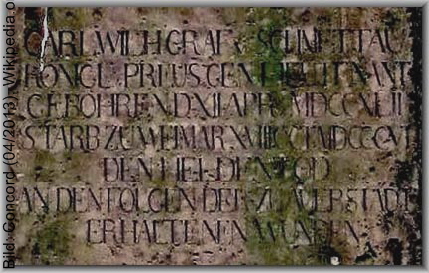 CARL WILH GRAF V SCHMETTAU
KÖNIGL PREUS GEN LIEUTNANT
GEBOHREN D XII APR MDCCXLII
STARB ZU WEIMAR XVIII OCT MDCCCVI
DEN HELDENTOD
AN DEN FOLGEN DER ZU AUERSTÄDT
ERHALTENEN WUNDEN
Bild: Concord (04/2013) - Wikipedia.o